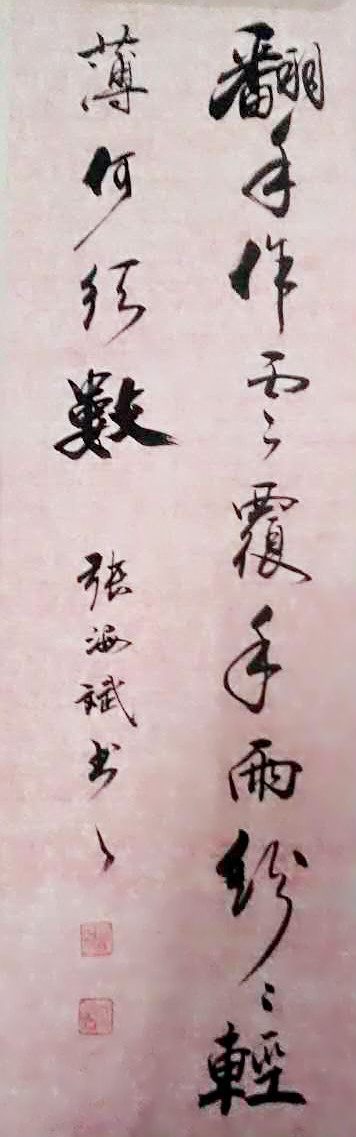 翻手作雲覆手雨紛〻輕
薄何須數
張海斌書